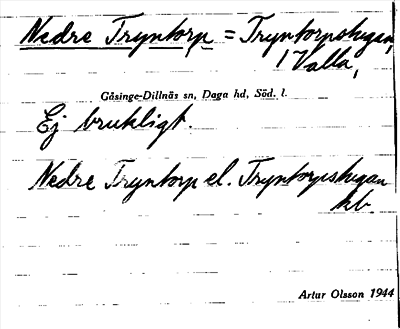 Nedre Tryntorp = Tryntorpstugan,
1 Valla,
Gåsinge-Dillnäs sn, Daga hd, Söd. l.
Ej brukligt.
Nedre Tryntorp el. Tryntorpstugan
kb.
Artur Olsson 1944